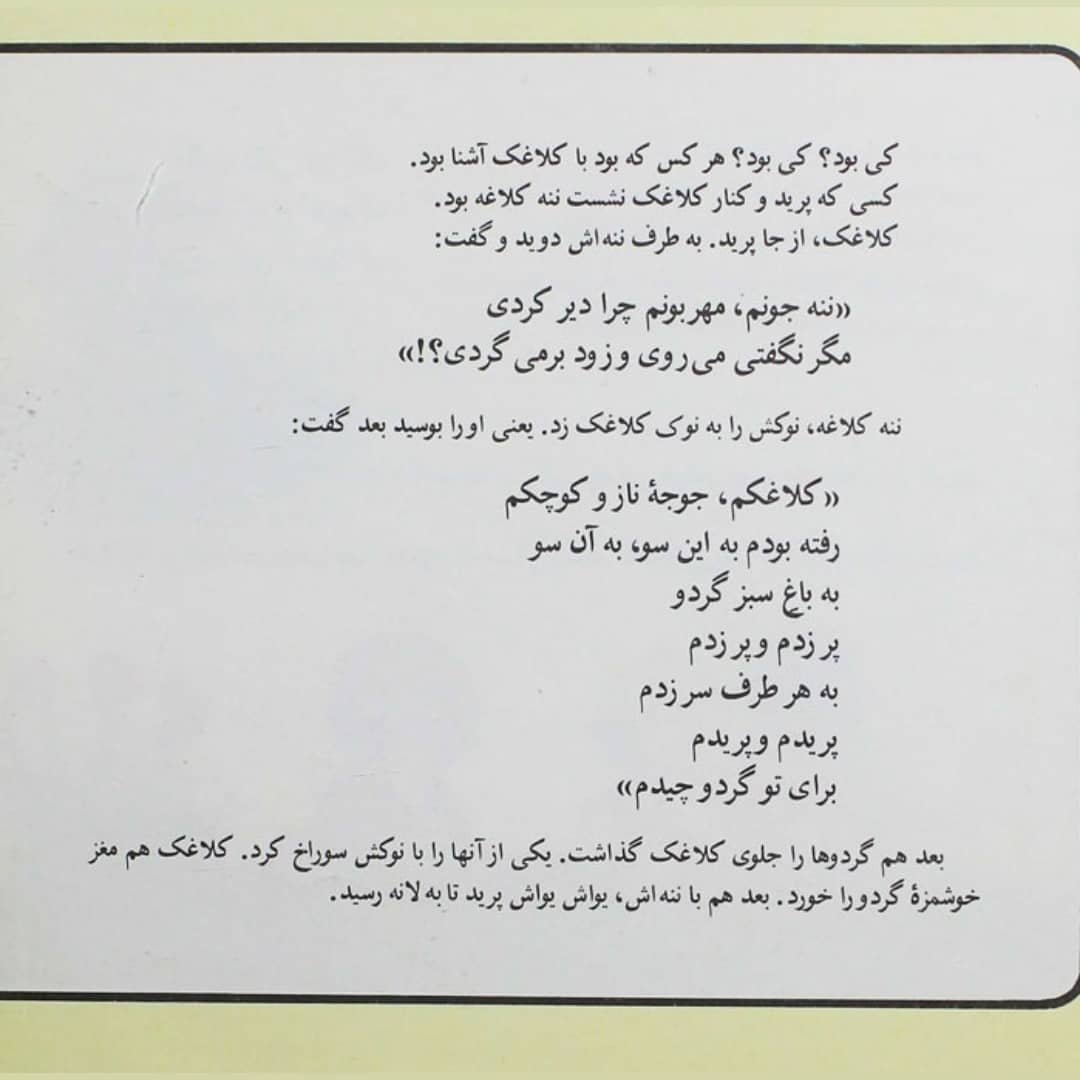 کی بود؟ کی بود؟ هر کس که بود با کلاغک آشنا بود.
کسی که پرید و کنار کلاغک نشست ننه کلاغه بود.
کلاغک، از جا پرید. به طرف ننه‌اش دوید و گفت:
«ننه جونم، مهربونم چرا دیر کردی
مگر نگفتی می‌روی و زود برمی گردی؟!»
ننه کلاغه، نوکش را به نوک کلاغک زد. یعنی او را بوسید بعد گفت:
«کلاغکم، جوجهٔ ناز و کوچکم
رفته بودم به این سو، به آن سو
به باغ سبز گردو
پر زدم و پر زدم
به هر طرف سر زدم
پریدم و پریدم
برای تو گردو چیدم»
بعد هم گردوها را جلوی کلاغک گذاشت. یکی از آنها را با نوکش سوراخ کرد. کلاغک هم مغز
خوشمزهٔ گردو را خورد. بعد هم با ننه‌اش، یواش یواش پرید تا به لانه رسید.